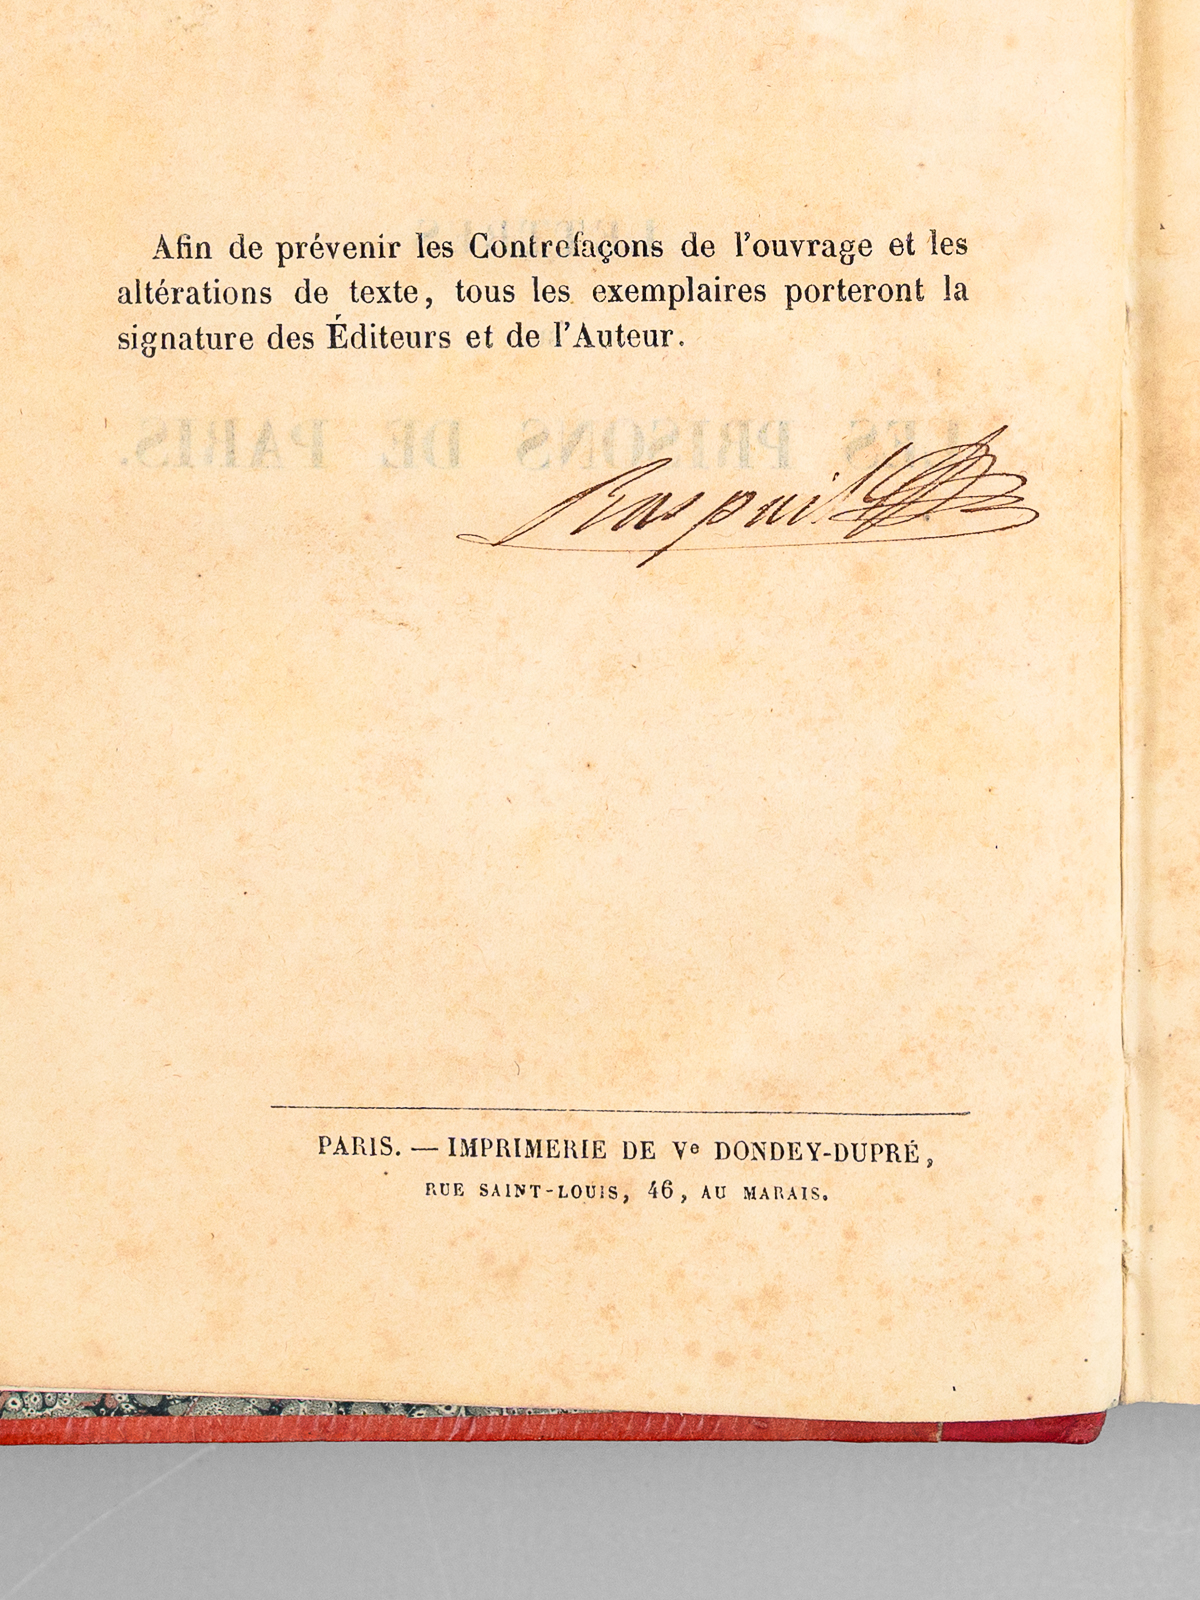 Afin de prévenir les Contrefaçons de l'ouvrage et les
altérations de texte, tous les exemplaires porteront la
signature des Éditeurs et de l'Auteur.
LES PRISONS DE PARIS.
Raspail
PARIS. — IMPRIMERIE DE Vᵉ DONDEY-DUPRÉ,
RUE SAINT-LOUIS, 46, AU MARAIS.